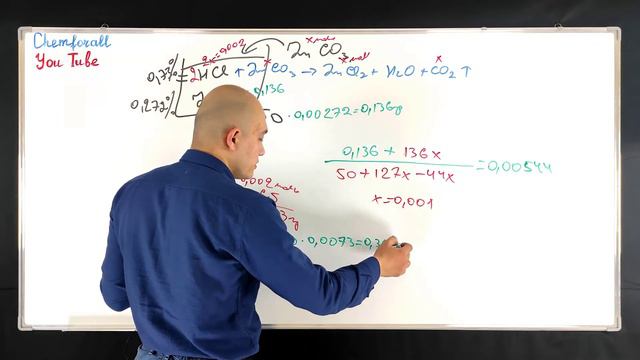 Chemforall
You Tube
2x=0,002
x mol
Zn CO3
x
x mol
x
0,73%
2HCl + ZnCO3 → ZnCl2 + H2O + CO2 ↑
0,136
0,272%
0 · 0,00272=0,136g
0,136 + 136x
50 + 127x - 44x
=0,00544
x=0,001
0,002 mol
5
3g
0 · 0,0073=0,3